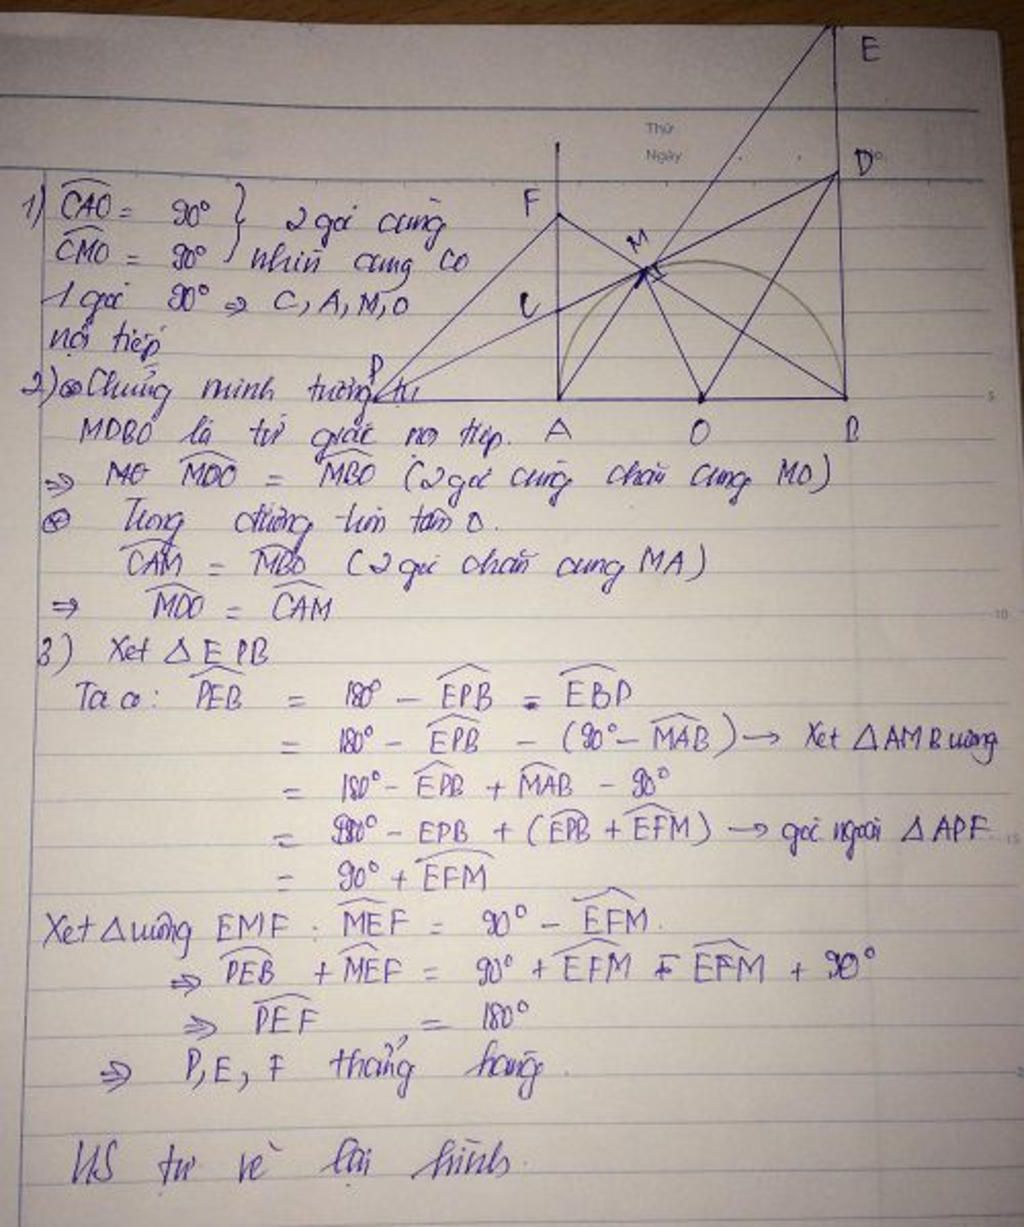 E
Thứ
Ngày
D
No.
F
M
C
P
A
O
B
1) CAO = 90° } 2 góc cùng
CMO = 90° nhìn cung có
1 góc 90° => C, A, M, O
nội tiếp
2) Chứng minh tương tự
MDBO là tứ giác nội tiếp.
=> MDO = MBO (2 góc cùng chắn cung MO)
Trong đường tròn tâm O.
CAM = MBO (2 góc chắn cung MA)
=> MDO = CAM
3) Xét Δ EPB
Ta có: PEB = 180° - EPB - EBP
= 180° - EPB - (90° - MAB) → Xét Δ AMB vuông
= 180° - EPB + MAB - 90°
= 90° - EPB + (EPB + EFM) → góc ngoài Δ APF
= 90° + EFM
Xét Δ vuông EMF: MEF = 90° - EFM.
=> PEB + MEF = 90° + EFM - EFM + 90°
=> PEF = 180°
=> P, E, F thẳng hàng.
HS tự vẽ lại hình.
5
10
15